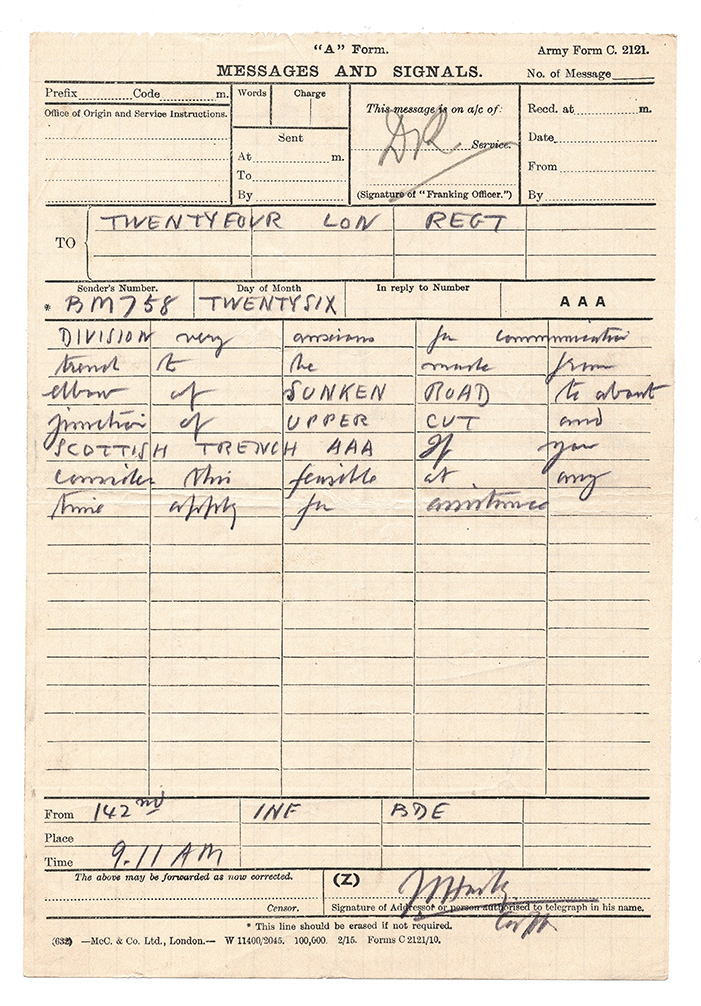 "A" Form.
Army Form C. 2121.
MESSAGES AND SIGNALS.
No. of Message
Prefix Code m.
Words Charge
This message is on a/c of:
Recd. at m.
Office of Origin and Service Instructions.
Sent
At m.
To
By
DRL
Service.
(Signature of "Franking Officer.")
Date
From
By
TO
TWENTYFOUR LON REGT
Sender's Number.
Day of Month
In reply to Number
AAA
* BM758 TWENTYSIX
DIVISION very anxious for communication
trench to be made from
elbow of SUNKEN ROAD to about
junction of UPPER CUT and
SCOTTISH TRENCH AAA If you
consider this feasible at any
time apply for assistance
From 142nd INF BDE
Place
Time 9.11 AM
The above may be forwarded as now corrected.
(Z)
Censor.
Signature of Addressor or person authorised to telegraph in his name.
Capt
* This line should be erased if not required.
(632) —McC. & Co. Ltd., London.— W 11400/2045. 100,000. 2/15. Forms C 2121/10.